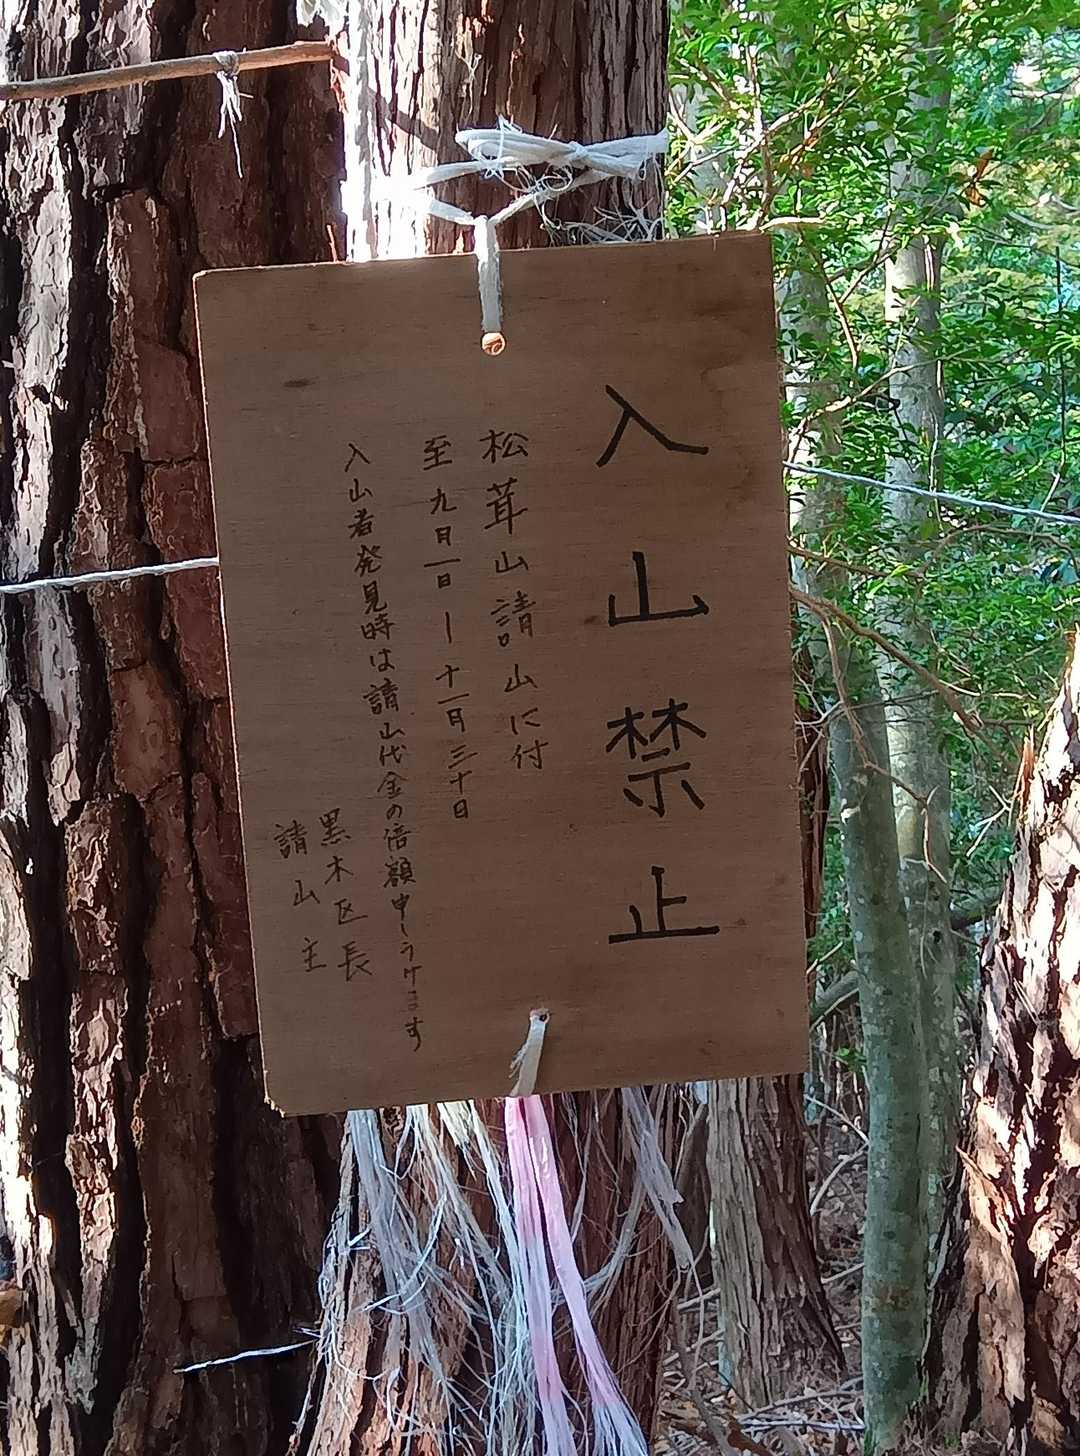 入山禁止
松茸山請山に付
至九月一日ー十一月三十日
入山者発見時は請山代金の倍額申しうけます
黒木区長
請山主